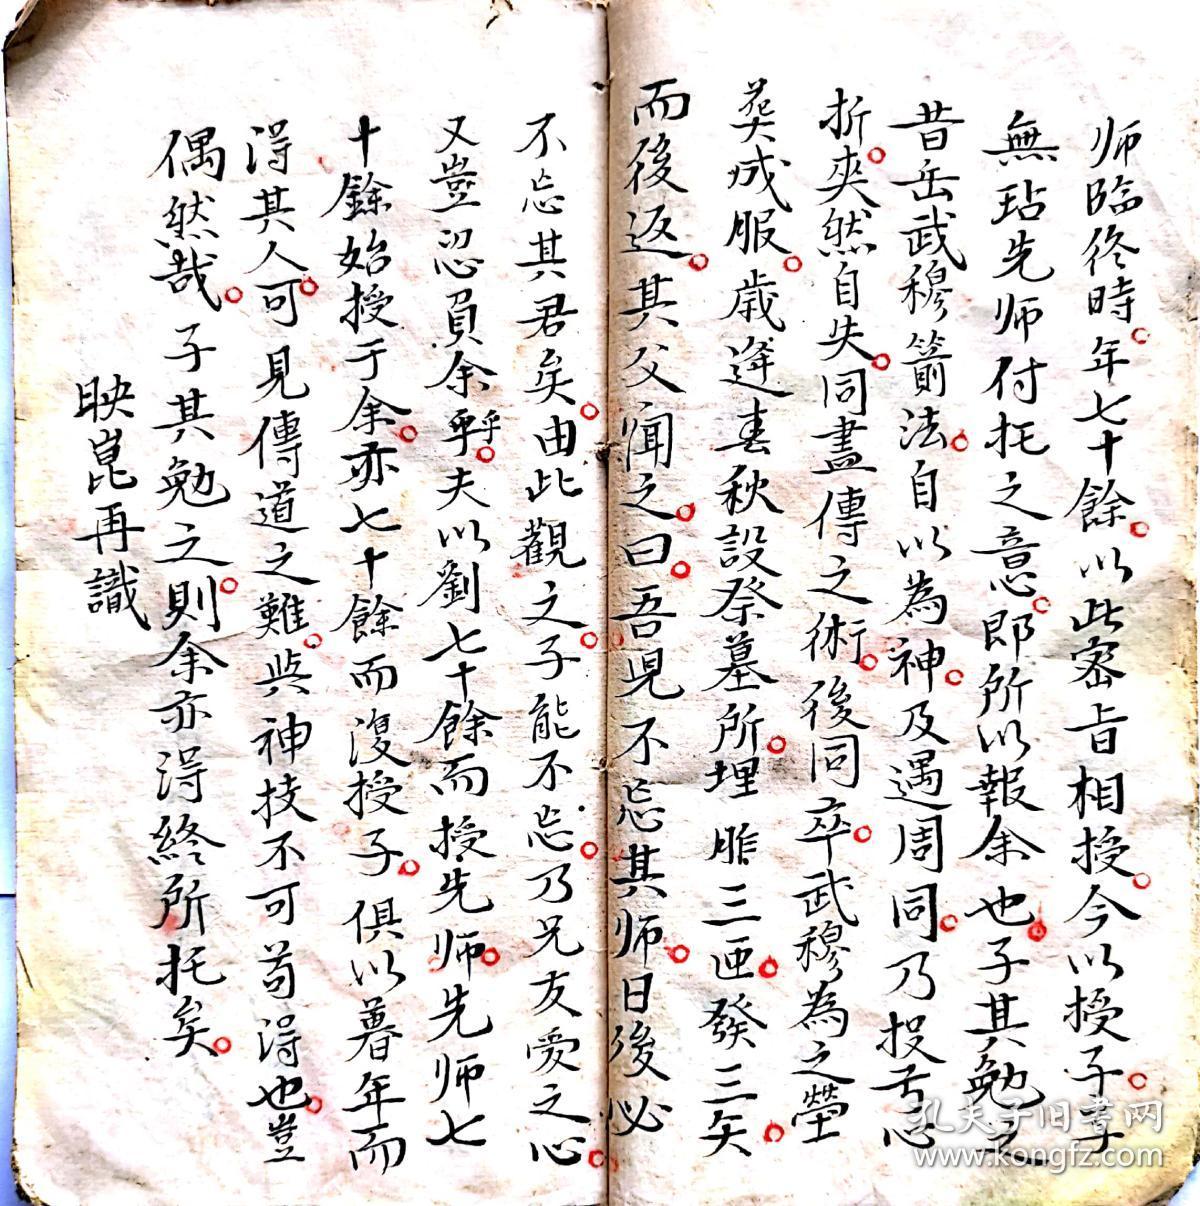 师臨終時年七十餘以此密旨相授今以授子子
無玷先师付托之意即所以報余也子其勉之
昔岳武穆箭法自以為神及遇周同乃投
折爽然自失同盡傳之術後同卒武穆為之塋
葬成服歲逢春秋設祭墓所埋胙三匝發三矢
而後返其父闻之曰吾児不忘其师日後必
不忘其君矣由此觀之子能不忘乃兄友愛之心
又豈忍負余乎夫以劉七十餘而授先师先师七
十餘始授于余余亦七十餘而復授子俱以暮年而
淂其人可見傳道之難與神技不可苟淂也豈
偶然哉子其勉之則余亦淂終所托矣
映崑再識
孔夫子旧书网
www.kongfz.com